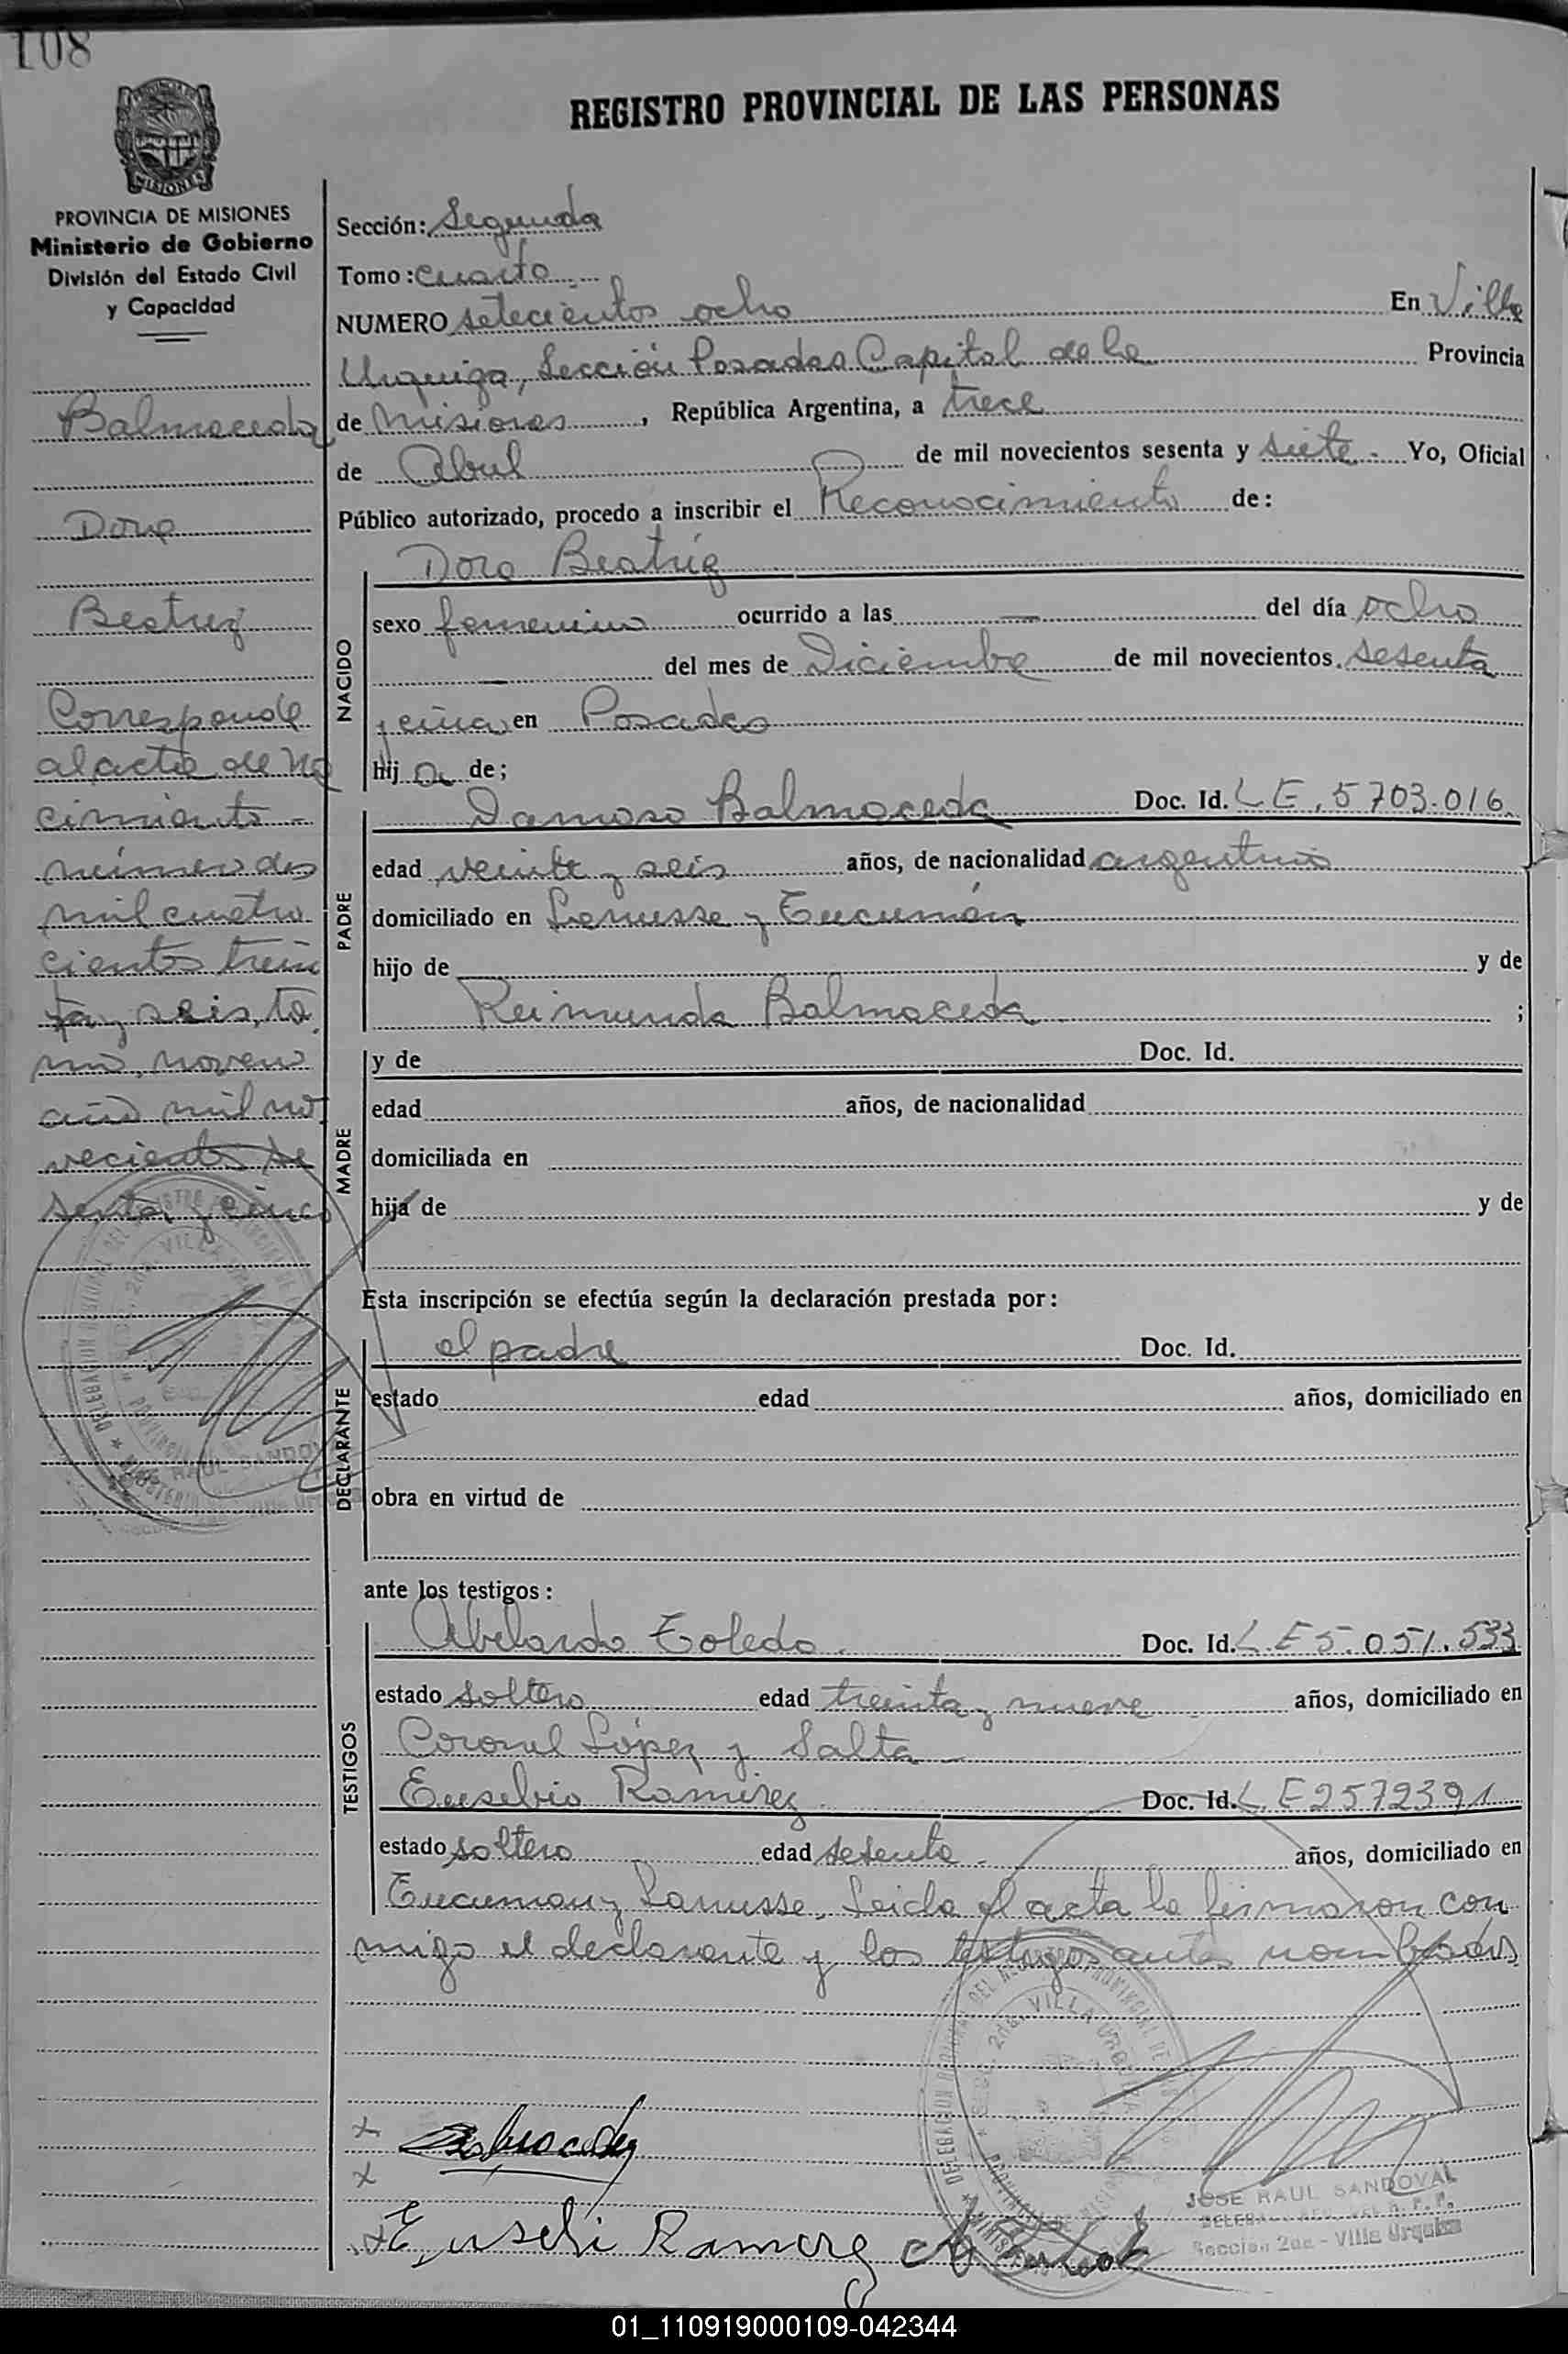 108
REGISTRO PROVINCIAL DE LAS PERSONAS
MISIONES
PROVINCIA DE MISIONES
Ministerio de Gobierno
División del Estado Civil
y Capacidad
Balmaceda
Dora
Beatriz
Corresponde
al acta de Na
cimiento -
número dos
mil cuatro
cientos trein
ta y seis, to
mo, noveno
año mil no
vecientos se
senta y cinco
Sección: Segunda
Tomo: cuarto
NUMERO setecientos ocho En Villa
Urquiza, Sección Posadas Capital de la Provincia
de Misiones, República Argentina, a trece
de Abril de mil novecientos sesenta y siete - Yo, Oficial
Público autorizado, procedo a inscribir el Reconocimiento de:
NACIDO
Dora Beatriz
sexo femenino ocurrido a las — del día ocho
— del mes de Diciembre de mil novecientos sesenta
y cinco en Posadas
hij a de;
PADRE
Damaso Balmaceda Doc. Id. L E. 5703.016
edad veinte y seis años, de nacionalidad argentino
domiciliado en Lanusse y Tucumán
hijo de y de
Reimunda Balmaceda ;
MADRE
y de Doc. Id.
edad años, de nacionalidad
domiciliada en
hija de y de
Esta inscripción se efectúa según la declaración prestada por:
DECLARANTE
el padre Doc. Id.
estado edad años, domiciliado en
obra en virtud de
ante los testigos:
TESTIGOS
Abelardo Toledo. Doc. Id. L.E 5.051.533
estado soltero edad treinta y nueve años, domiciliado en
Coronel López y Salta
Eusebio Ramirez Doc. Id. L.E 2572391
estado soltero edad setenta - años, domiciliado en
Tucuman y Lanusse. Leida el acta la firmaron con
migo el declarante y los testigos antes nombrados
VILLA URQUIZA
x Balmaceda
x
x Eusebi Ramirez
JOSE RAUL SANDOVAL
Seccion 2da - Villa Urquiza
01_110919000109-042344